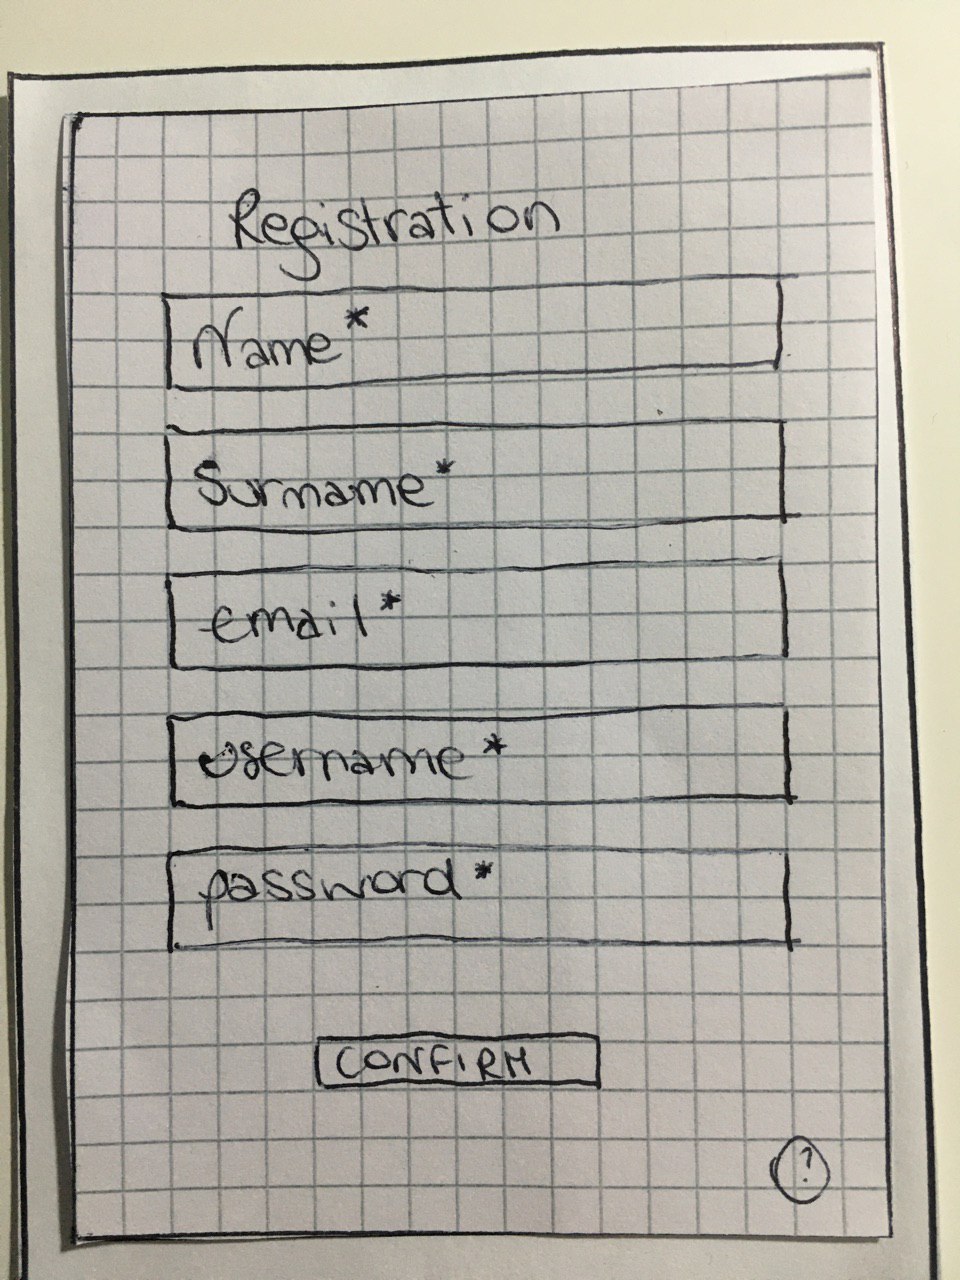 Registration
Name*
Surname*
email*
username*
password*
CONFIRM
?